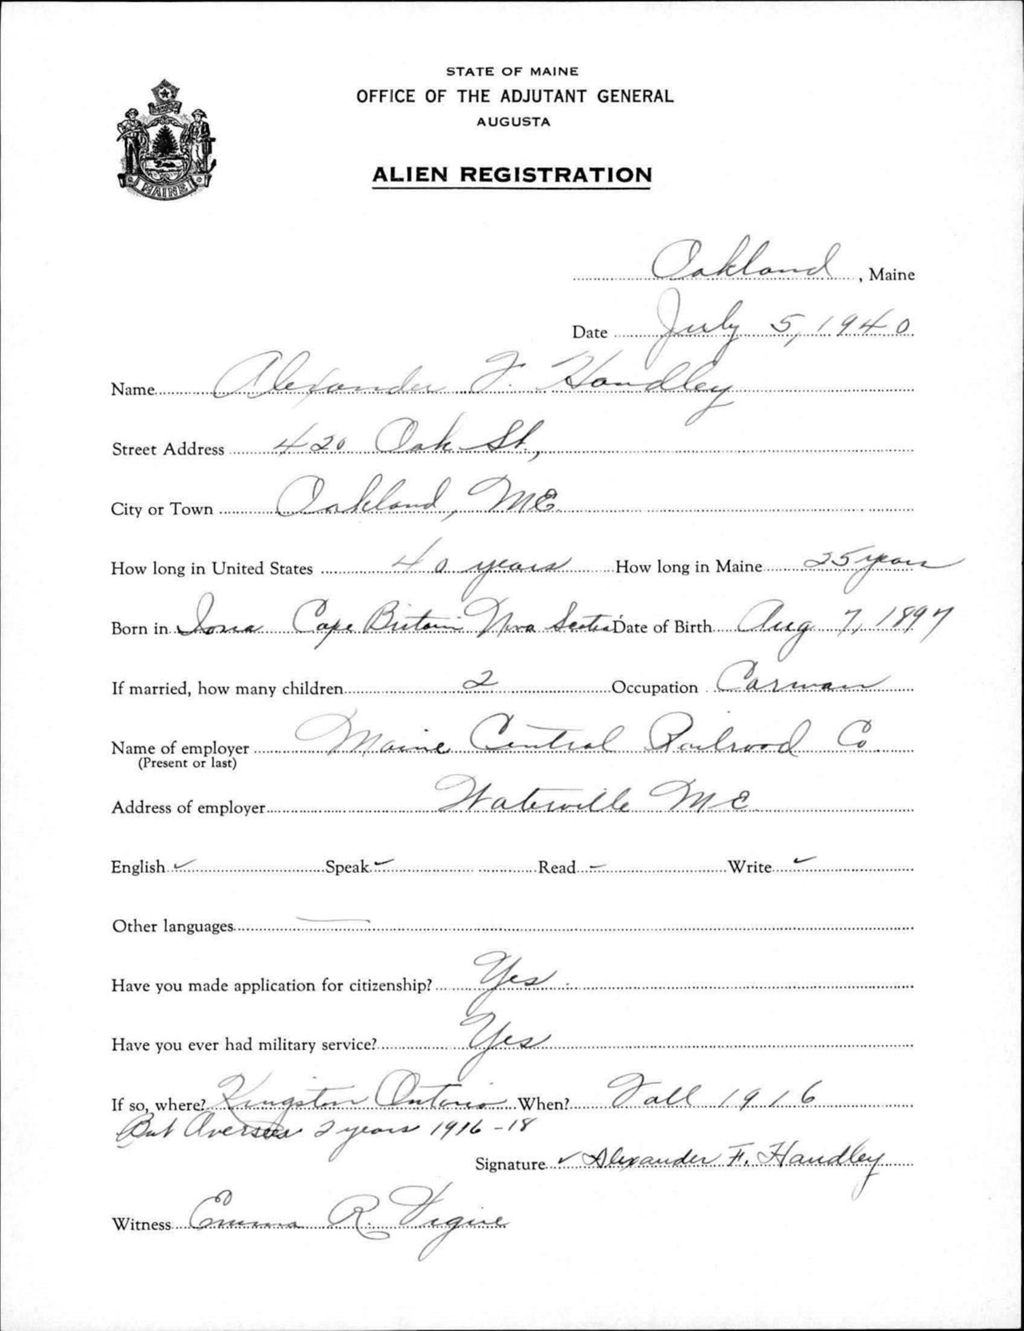 STATE OF MAINE
OFFICE OF THE ADJUTANT GENERAL
AUGUSTA
MAINE
ALIEN REGISTRATION
Oakland, Maine
Date July 5, 1940
Name Alexander F. Handley
Street Address 420 Oak St,
City or Town Oakland, ME
How long in United States 40 years How long in Maine 25 years
Born in Iona Cape Britain Nova Scotia Date of Birth Aug 7, 1897
If married, how many children 2 Occupation Carman
Name of employer Maine Central Railroad Co
(Present or last)
Address of employer Waterville ME
English ✓ Speak ✓ Read – Write ✓
Other languages —
Have you made application for citizenship? Yes
Have you ever had military service? Yes
If so, where? Kingston Ontario When? Fall 1916
But Overseas 2 years 1916-18
Signature ✓ Alexander F. Handley
Witness Emma R.